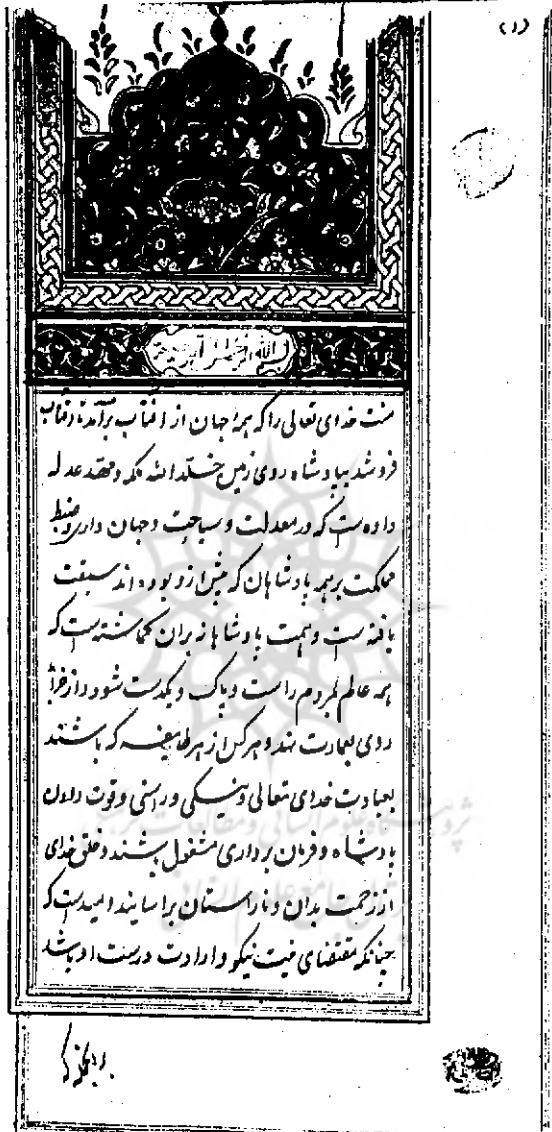 (۱)
بسم الله الرحمن الرحیم
منت خدای تعالی را که همه جهان از آفتاب برآمد تا آفتاب
فروشد بپادشاه روی زمین خلد الله ملکه و عدله
داده است که در معدلت و سیاست و جهان داری و ضبط
مملکت بر همه پادشاهان که پیش ازو بوده‌اند سبقت
یافته است و همت پادشاهانه بران گماشته است که
همه عالم مردم راست و پاک و یکدست شود و از خرابی
روی بعمارت نهد و هرکس از هر طایفه که باشند
بعبادت خدای تعالی و نیکی و راستی و قوت دادن
پادشاه و فرمان برداری مشغول باشند و خلق خدای
از زحمت بدان و ناراستان براسایند امیدست که
چنانکه مقتضای نیت نیکو و ارادت درست او باشد
پژوهشگاه علوم انسانی و مطالعات فرهنگی
پرتال جامع علوم انسانی